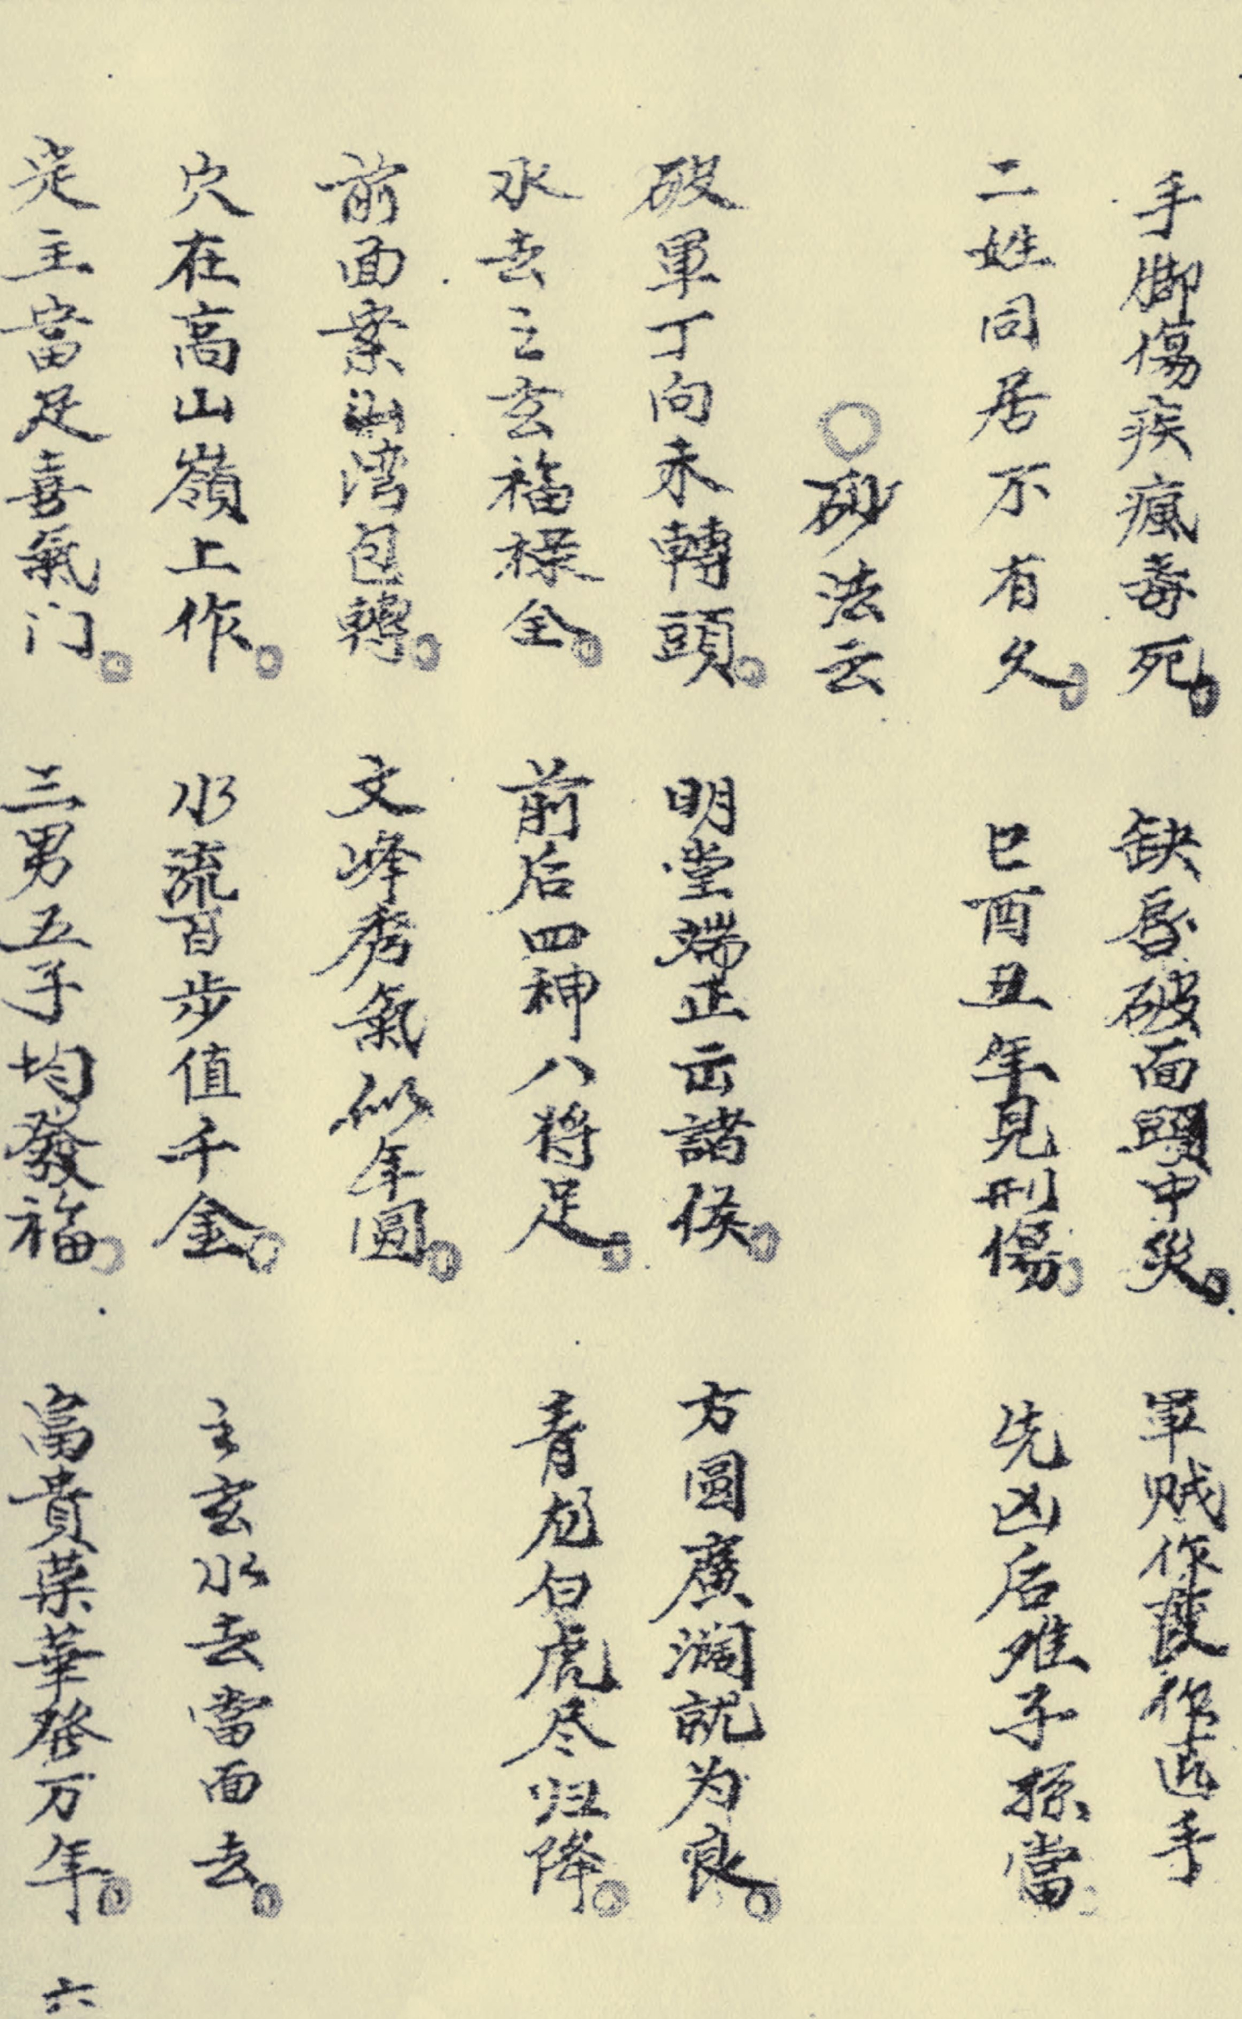 手脚傷疾瘋毒死。 缺唇破面頭中災。 軍賊作 作 手
二姓同居不有久。 巳酉丑年見刑傷。 先凶后难子孫當
○砂法云
破軍丁向未轉頭。 明堂端正出諸侯。 方圓廣濶就为良。
水去之玄福祿全。 前后四神八將足。 青龙白虎尽归降。
前面案山湾包轉。 文峰秀氣似年圓。
穴在高山嶺上作。 水流百步值千金。 之玄水去當面去。
定主當足喜氣门。 三男五子均發福。 富貴葉華發万年。
六